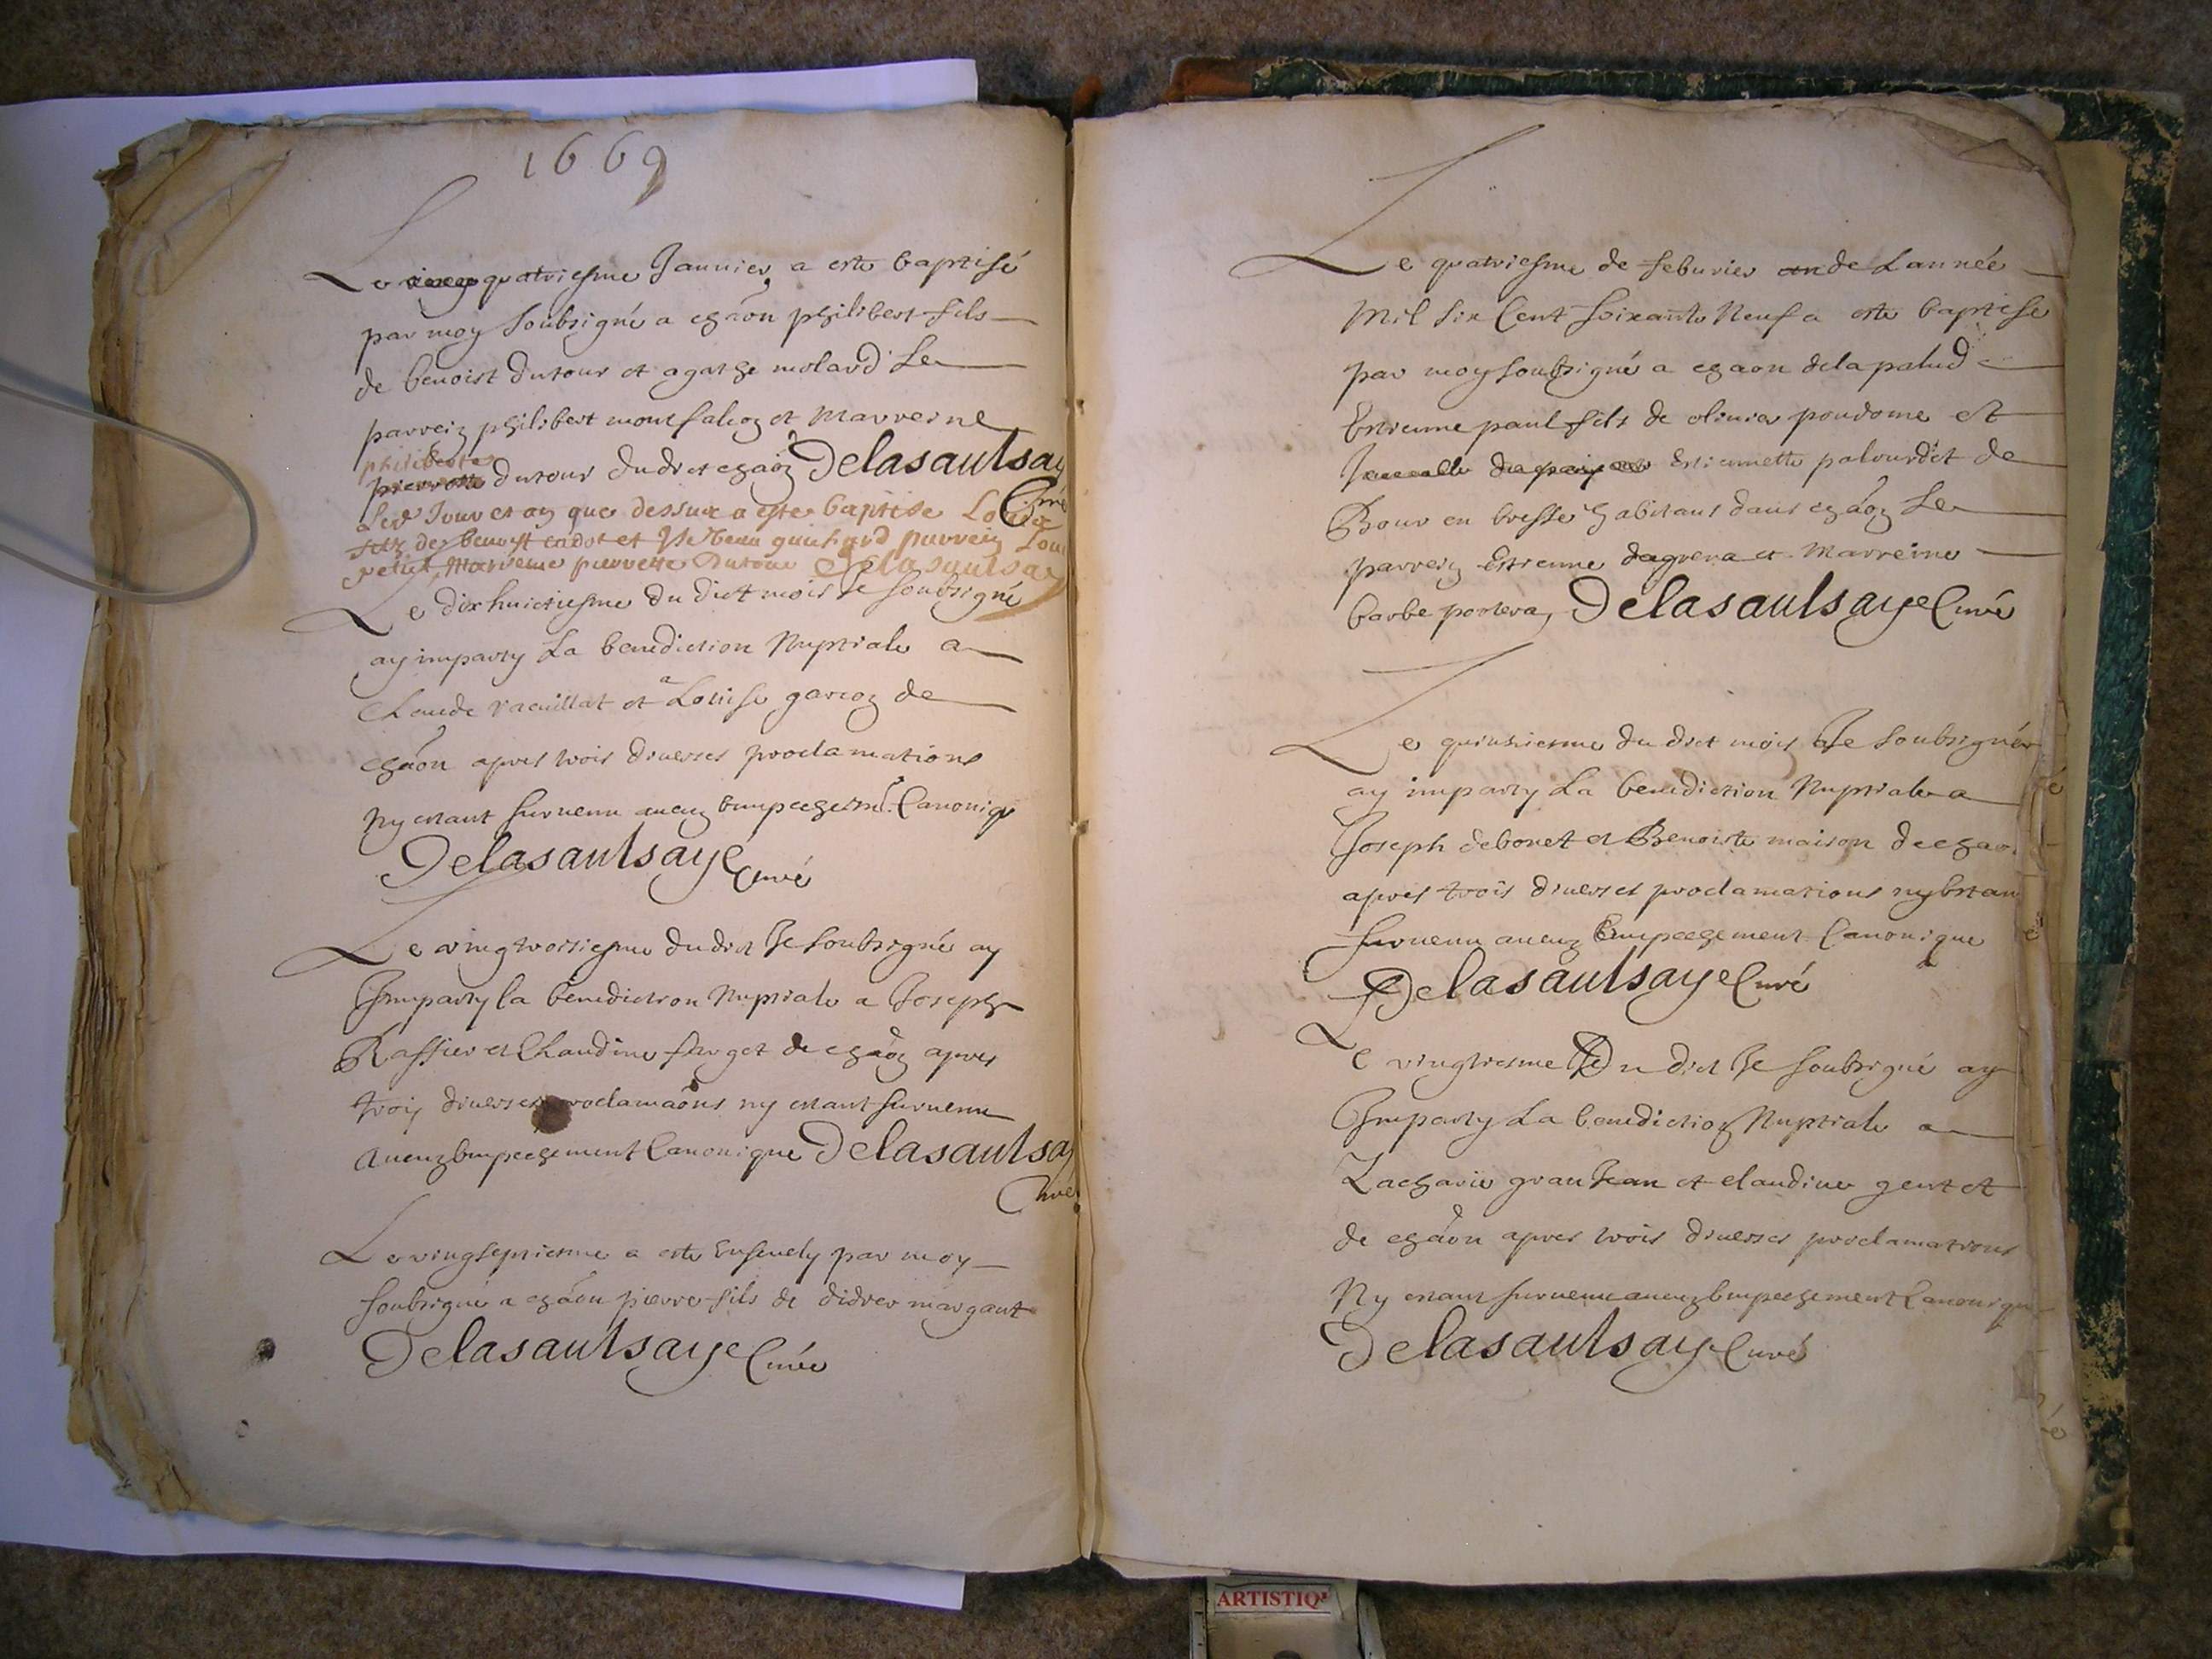 1669
Le quatriesme Januier a esté baptisé
par moy soubsigné a chãon philibert fils
de benoist dutour et agathe molard Le
parrein philibert montfalcon et Marreine
philiberte
dutour dudict chãon Delasaulsay
Curé
Led Jour et an que dessux a este baptise Louix
filz de benoyt cadot et guichard parrein Loui
petit Marreine pierrette Dutour Delasaulsay
Le dixhuictiesme du dict mois Je soubsigné
ay imparty La benediction Nuptiale a
Claude racuillat et a Louise garcon de
chãon apres trois diuerses proclamations
Ny estant suruenu aucun Empeschemt. Canoniq
Delasaulsaye Curé
Le vingtroisiesme dudict Je soubsigné ay
Imparty la benediction Nuptiale a Joseph
Rassier et Claudine farget de chãon apres
trois diuerses proclamaõns ny estant suruenu
Aucun Empeschement Canonique Delasaulsay
Curé
Le vingseptiesme a esté Enseuely par moy
soubsigné a chãon pierre fils de didier margant
Delasaulsaye Curé
Le quatriesme de feburier de Lannée
Mil six Cent soixante Neuf a esté baptisé
par moy soubsigné a chaon delapalud
Estienne paul fils de oliuier poudome et
Estiennette palourdet de
Bour en bresse habitans dans chãon Le
parrein Estienne dagrena et Marreine
barbe portera, Delasaulsaye Curé
Le quinsiesme du dict mois Je soubsigné
ay imparty La benediction Nuptiale a
Joseph debonet et Benoiste maison de chaon
apres trois diuerses proclamations ny Estan
suruenu aucun Empeschement Canonique
Delasaulsaye Curé
Le vingtiesme Du dict Je soubsigné ay
Imparty La benediction Nuptiale a
Zacharie granJean et claudine gentet
de chãon apres trois diuerses proclamations
Ny estant suruenu aucun Empeschement Canonique
Delasaulsaye Curé
ARTISTIQ